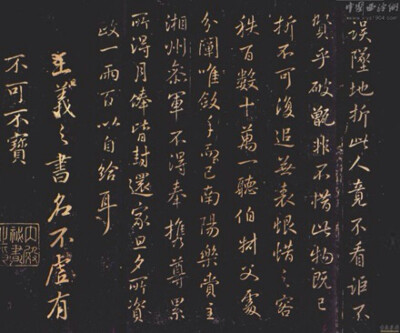 誤墜地折此人竟不看詎不
賢乎破甑非不惜此物既已
折不可復追表恨惜之容
秩百數十萬一聽伯父處
分唯敘子而已南陽樂貴主
湘州參軍不得奉攜尊累
所得月俸皆封還家旦夕所資
政一兩百以自給耳
王羲之書名不虛有
不可不寶